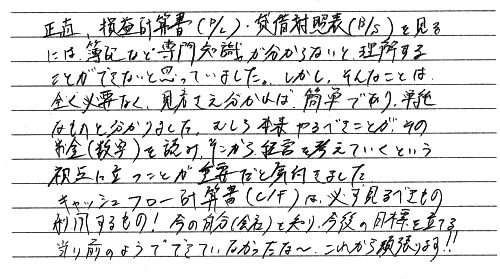 正直、損益計算書(P/L)・貸借対照表(B/S)を見る
には、簿記など専門知識が分からないと、理解する
ことができないと思っていました。しかし、そんなことは
全く必要なく、見方さえ分かれば簡単であり、単純
なものと分かりました。むしろ本来やるべきことが、その
料金(数字)を読み、そこから経営を考えていくという
視点に立つことが重要だと気付きました
キャッシュフロー計算書(C/F)は、必ず見るべきもの
利用するもの！今の自分(会社)を知り、今後の目標を立てる
当り前のようでできていなかったな〜、これから頑張ります!!